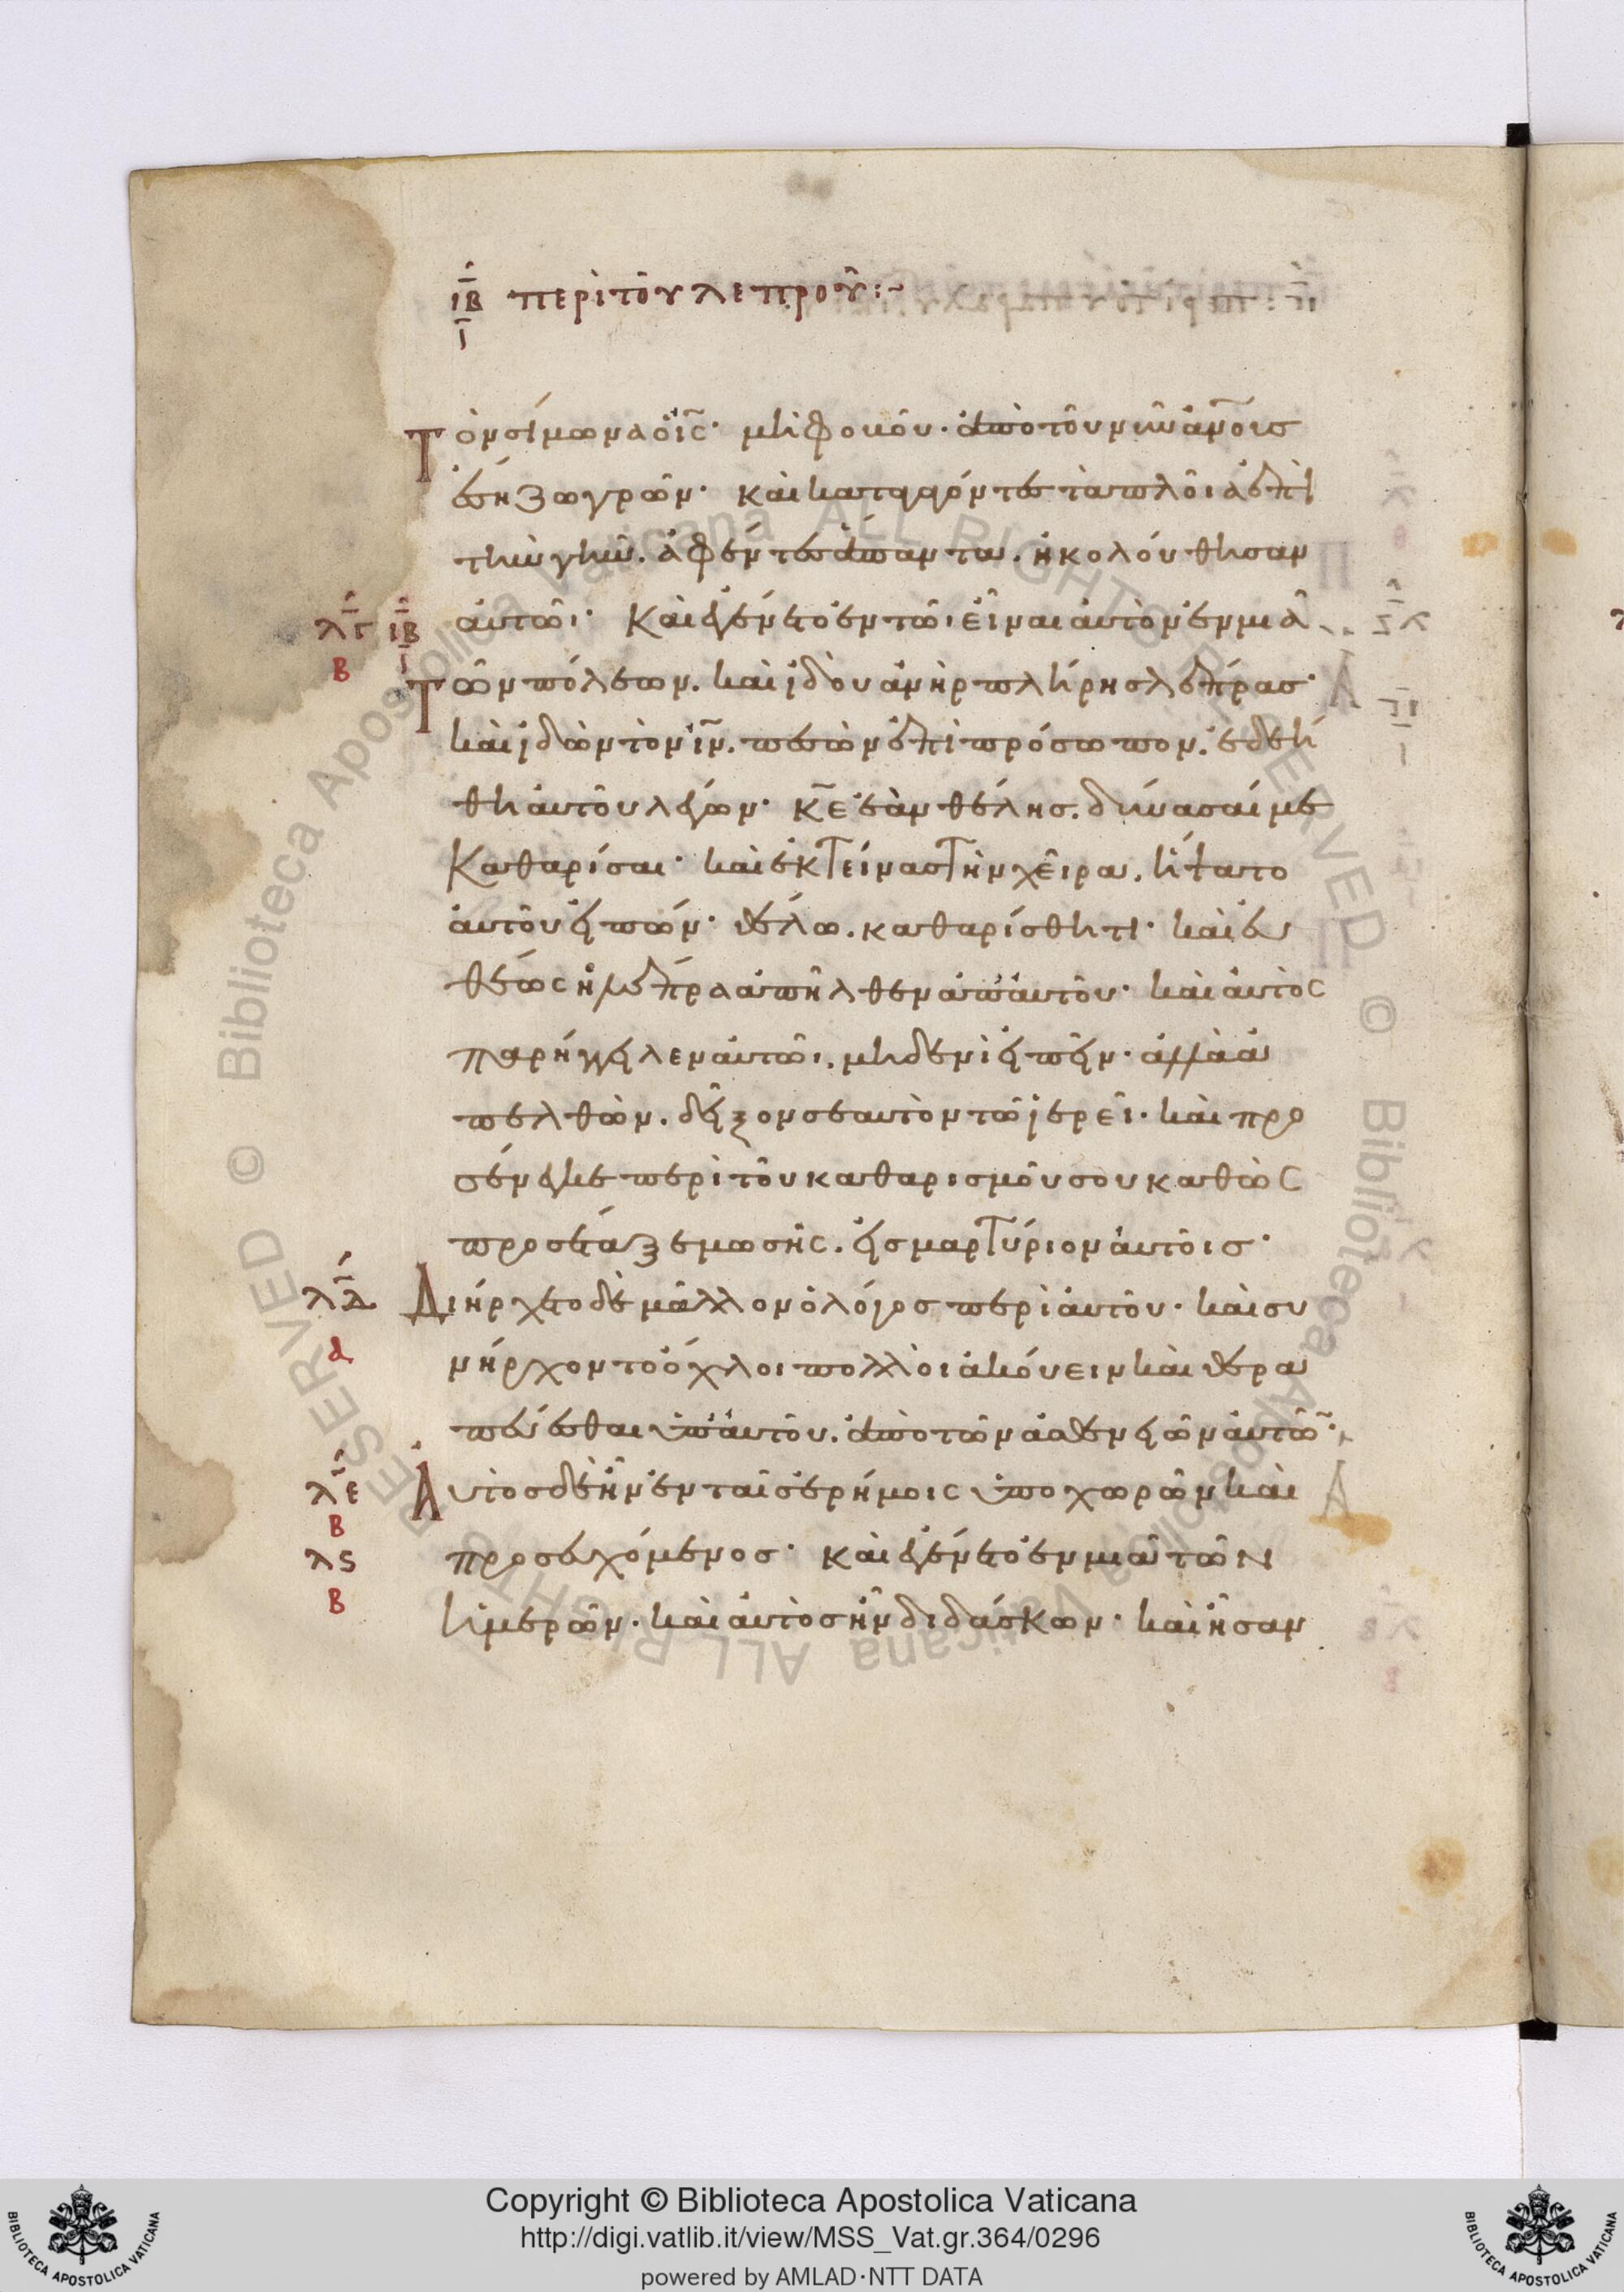 ιβ περὶ τοῦ λεπροῦ:~
ι
τὸν σίμωνα ὁ ις· μὴ φοβοῦ· ἀπὸ τοῦ νῦν ἀνους
ἔση ζωγρῶν· καὶ καταγαγόντες τὰ πλοῖα ἐπὶ
τὴν γῆν. ἀφέντες ἅπαντα. ἠκολούθησαν
λγ ιβ αὐτῶι· Καὶ ἐγένετο ἐν τῶι εἶναι αὐτὸν ἐν μιᾶ
β ι
Τῶν πόλεων. καὶ ἰδοὺ ἀνὴρ πλήρησ λέπρασ·
καὶ ἰδὼν τὸν ιν. πεσὼν ἐπὶ πρόσωπον. ἐδεή
θη αὐτοῦ λέγων· κε ἐὰν θέλησ. δύνασαί με
Καθαρίσαι· καὶ ἐκτείνασ τὴν χεῖρα. ἥψατο
αὐτοῦ εἰπών· θέλω. καθαρίσθητι· καὶ εὐ
θέως ἡ λέπρα ἀπῆλθεν ἀπ' αὐτοῦ· καὶ αὐτὸς
παρήγγειλεν αὐτῶι. μηδενὶ εἰπεῖν· ἀλλὰ ἀ
πελθὼν. δεῖξον σεαυτὸν τῶ ἱερεῖ· καὶ προ
σένεγκε περὶ τοῦ καθαρισμοῦ σου καθὼς
προσέταξε μωσῆς. εἰσ μαρτύριον αὐτοῖσ·
λδ Διήρχετο δὲ μᾶλλον ὁ λόγοσ περὶ αὐτοῦ· καὶ συ
α νήρχοντο ὄχλοι πολλοὶ ἀκούειν καὶ θερα
πεύεσθαι ὑπ' αὐτοῦ. ἀπὸ τῶν ἀσθενειῶν αὐτῶ·
λε Αὐτὸσ δὲ ἦν ἐν ταῖσ ἐρήμοις ὑποχωρῶν καὶ
β
λς προσευχόμενοσ· Καὶ ἐγένετο ἐν μιᾶ τῶν
β
ἡμερῶν· καὶ αὐτὸσ ἦν διδάσκων· καὶ ἦσαν
Copyright © Biblioteca Apostolica Vaticana
http://digi.vatlib.it/view/MSS_Vat.gr.364/0296
powered by AMLAD·NTT DATA